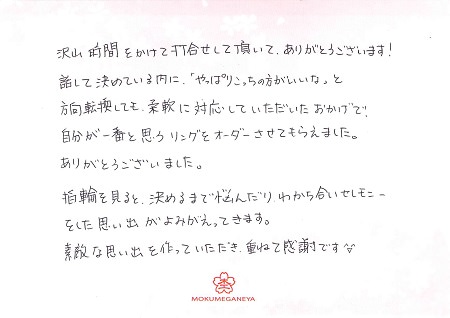 沢山時間をかけて打合せして頂いて、ありがとうございます!
話して決めている内に、「やっぱりこっちの方がいいな」と
方向転換しても、柔軟に対応していただいたおかげで、
自分が一番と思うリングをオーダーさせてもらえました。
ありがとうございました。
指輪を見ると、決めるまで悩んだり、わかち合いセレモニー
をした思い出がよみがえってきます。
素敵な思い出を作っていただき、重ねて感謝です
MOKUMEGANEYA